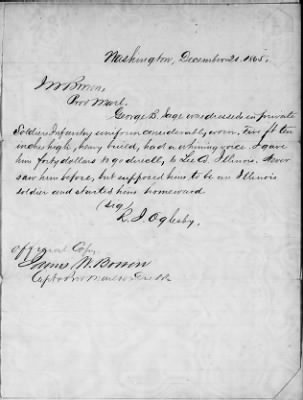 Washington, December 21. 1865.
J W Bowen,
Prov Marl.
George B. Gage was dressed in private
Soldiers Infantry uniform considerably worn, Five ft ten
inches high, heavy build, had a whining voice. I gave
him forty dollars to go directly to Illinois. Never
saw him before, but supposed him to be an Illinois
soldier and started him homeward
(sig)
R. J. Oglesby.
official Copy,
James W. Bowen
Capt &